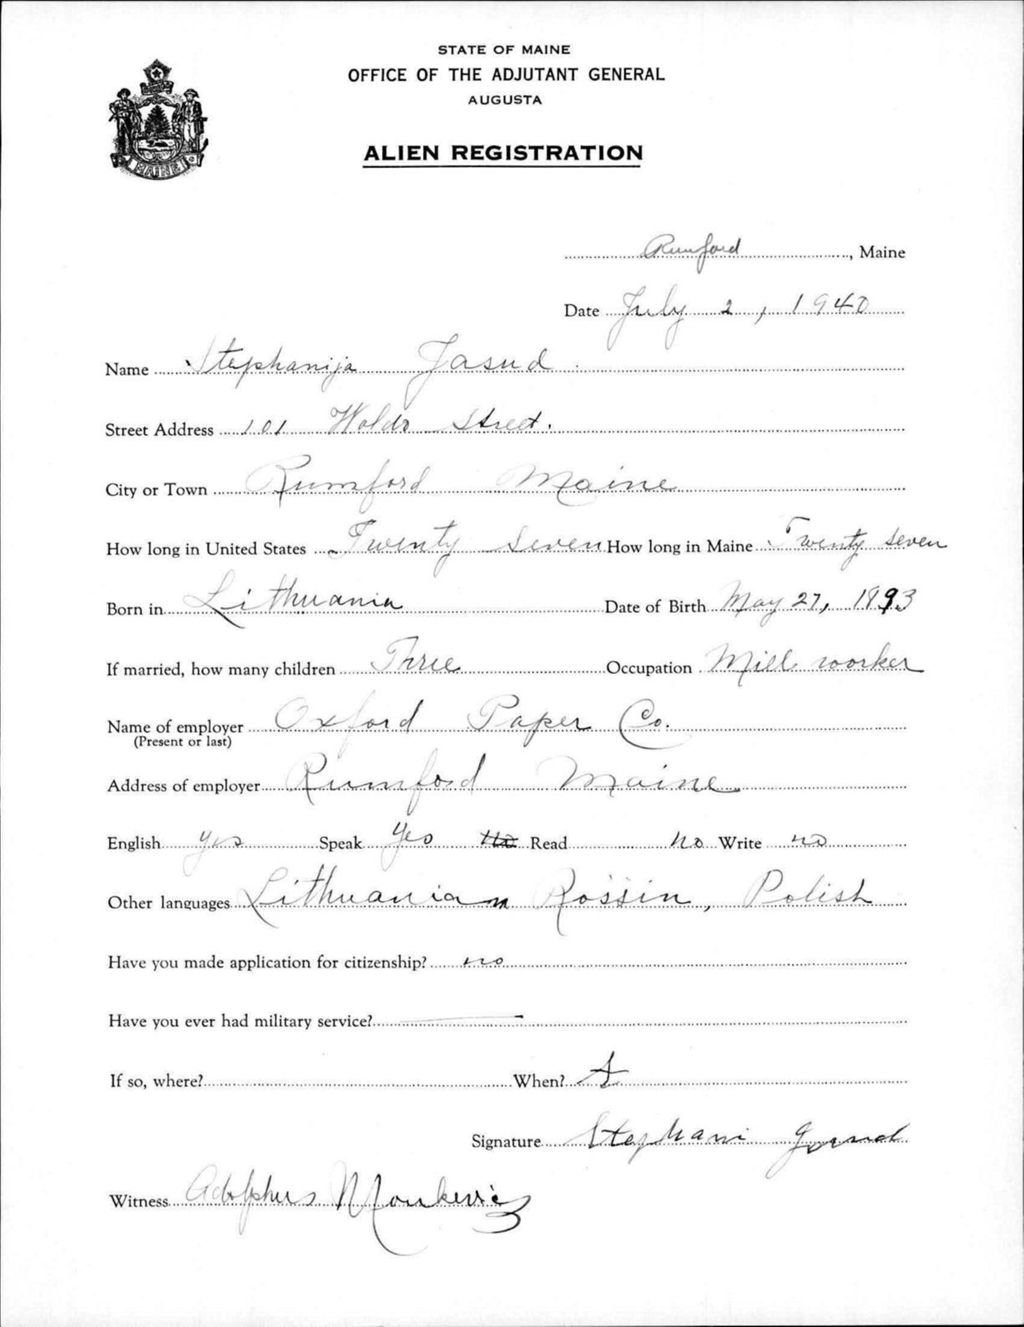 STATE OF MAINE
OFFICE OF THE ADJUTANT GENERAL
AUGUSTA
ALIEN REGISTRATION
MAINE
Rumford, Maine
Date July 2, 1940
Name Stephanija Jasud
Street Address 101 Waldo Street.
City or Town Rumford Maine
How long in United States Twenty Seven How long in Maine Twenty seven
Born in Lithuania Date of Birth May 27, 1893
If married, how many children Three Occupation Mill worker
Name of employer Oxford Paper Co.
(Present or last)
Address of employer Rumford Maine
English yes Speak yes no Read no Write no
Other languages Lithuanian Rossin, Polish
Have you made application for citizenship? no
Have you ever had military service?
If so, where? When?
Signature Stephani
Witness Adolphus